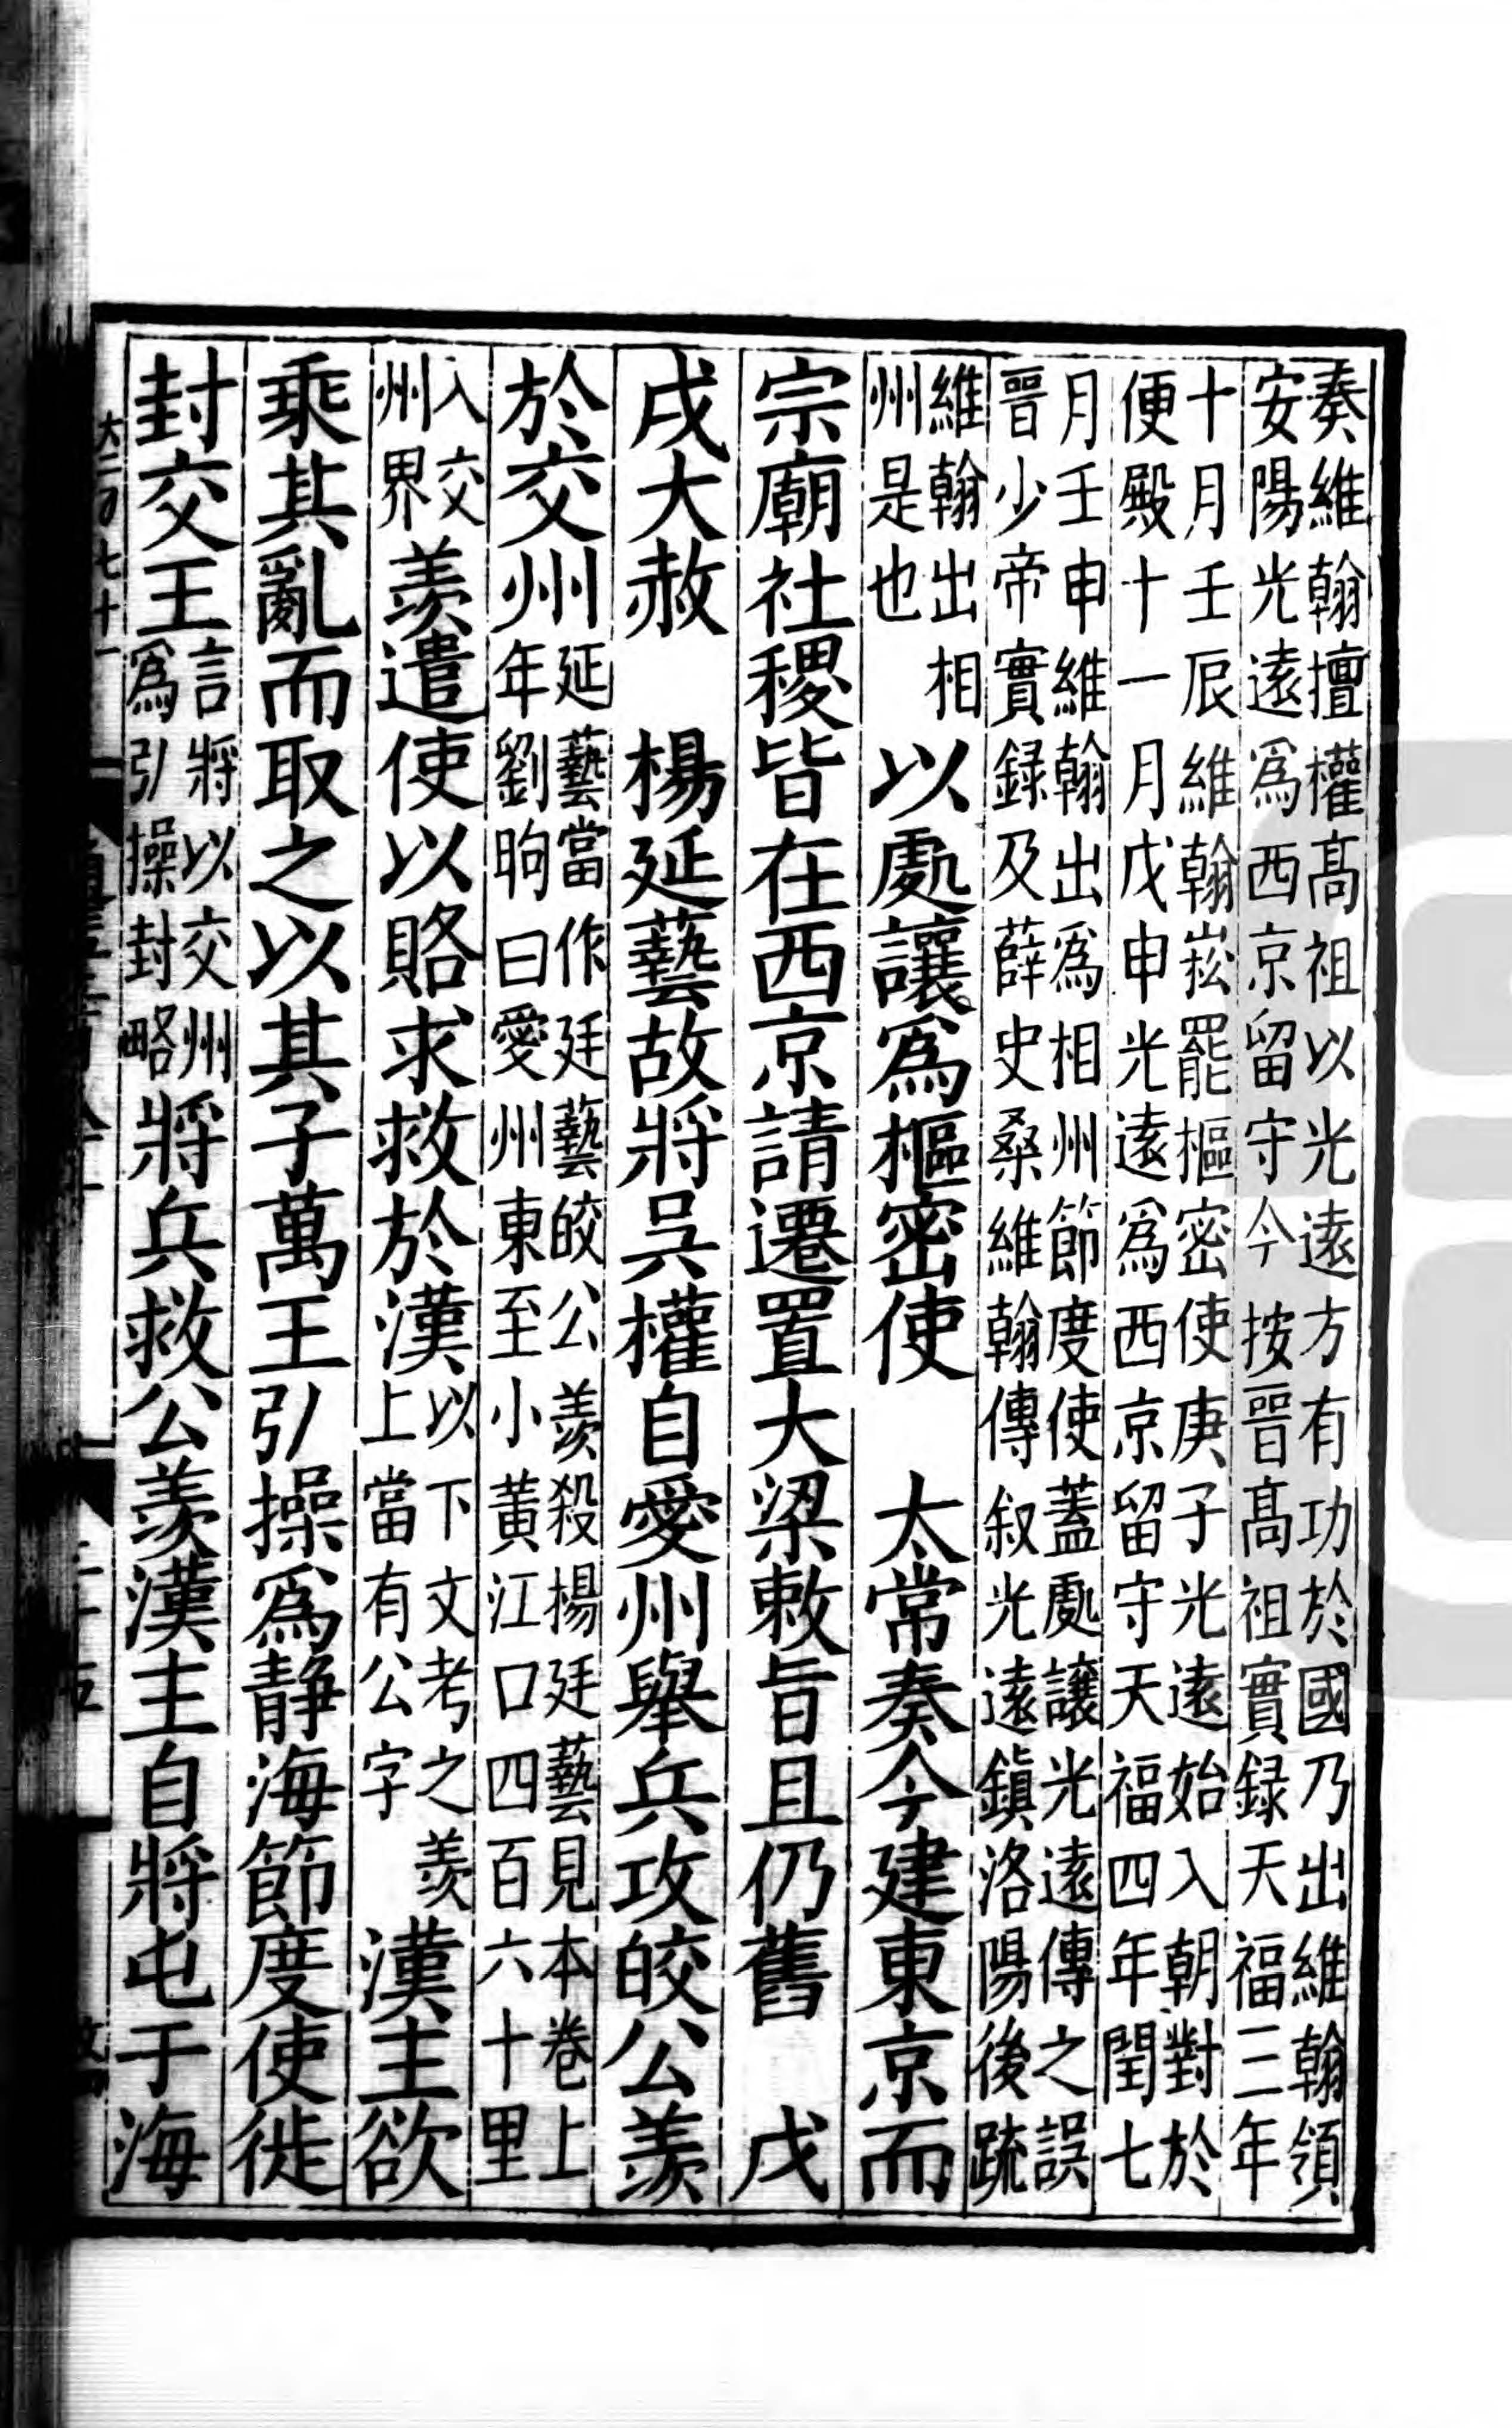 奏維翰擅權高祖以光遠方有功於國乃出維翰領
安陽光遠爲西京留守今按晉高祖實録天福三年
十月壬辰維翰崧罷樞密使庚子光遠始入朝對於
便殿十一月戊申光遠爲西京留守天福四年閏七
月壬申維翰出爲相州節度使蓋處讓光遠傳之誤
晉少帝實録及薛史桑維翰傳叙光遠鎮洛陽後疏
維翰出相
州是也
以處讓爲樞密使　太常奏今建東京而
宗廟社稷皆在西京請遷置大梁敕旨且仍舊　戊
戌大赦　楊延藝故將吳權自愛州舉兵攻皎公羡
於交州
延藝當作廷藝皎公羡殺楊廷藝見本卷上
年劉昫曰愛州東至小黃江口四百六十里
入交
州界
羡遣使以賂求救於漢
以下文考之羡
上當有公字
漢主欲
乘其亂而取之以其子萬王弘操爲靜海節度使徙
封交王
言將以交州
爲弘操封略
將兵救公羡漢主自將屯于海
大二百七十一